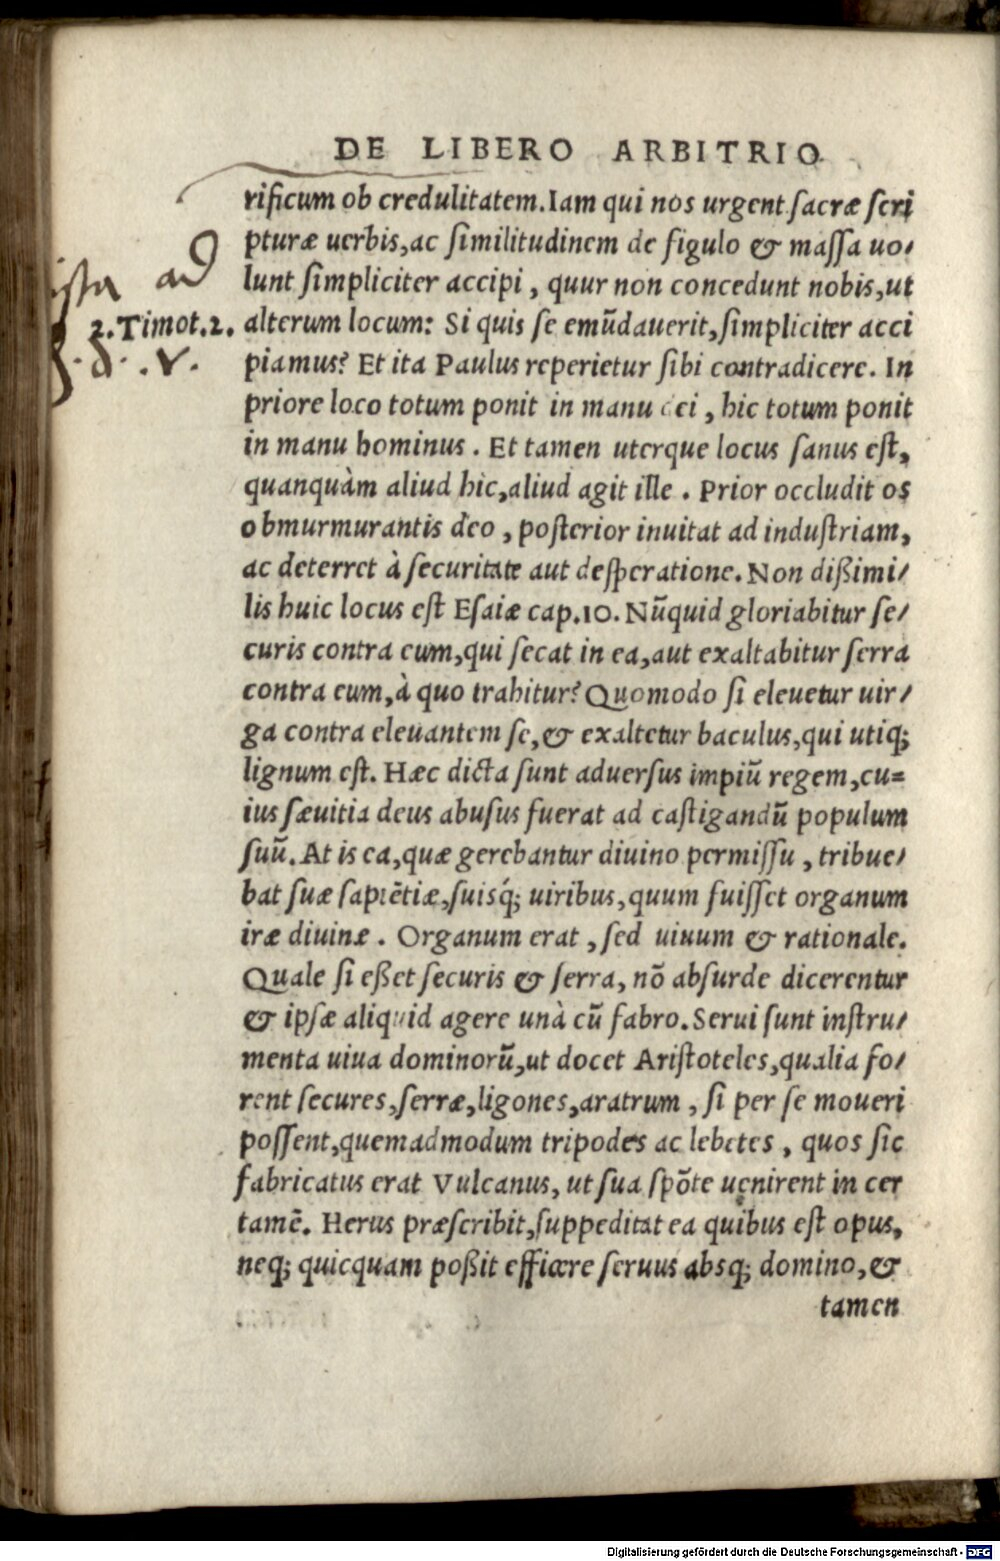 DE LIBERO ARBITRIO
rificum ob credulitatem. Iam qui nos urgent sacræ scri
pturæ uerbis, ac similitudinem de figulo & massa uo/
lunt simpliciter accipi, quur non concedunt nobis, ut
2.Timot.2. alterum locum: Si quis se emũdauerit, simpliciter acci
piamus? Et ita Paulus reperietur sibi contradicere. In
priore loco totum ponit in manu dei, hic totum ponit
in manu hominus. Et tamen uterque locus sanus est,
quanquàm aliud hic, aliud agit ille. Prior occludit os
obmurmurantis deo, posterior inuitat ad industriam,
ac deterret à securitate aut desperatione. Non dißimi/
lis huic locus est Esaiæ cap.10. Nũquid gloriabitur se/
curis contra eum, qui secat in ea, aut exaltabitur serra
contra eum, à quo trahitur? Quomodo si eleuetur uir/
ga contra eleuantem se, & exaltetur baculus, qui utiq;
lignum est. Hæc dicta sunt aduersus impiũ regem, cu=
ius sæuitia deus abusus fuerat ad castigandũ populum
suũ. At is ea, quæ gerebantur diuino permissu, tribue/
bat suæ sapiẽtiæ, suisq́; uiribus, quum fuisset organum
iræ diuinæ. Organum erat, sed uiuum & rationale.
Quale si eßet securis & serra, nõ absurde dicerentur
& ipsæ aliquid agere unà cũ fabro. Serui sunt instru/
menta uiua dominorũ, ut docet Aristoteles, qualia fo/
rent secures, serræ, ligones, aratrum, si per se moueri
possent, quemadmodum tripodes ac lebetes, quos sic
fabricatus erat Vulcanus, ut sua spõte uenirent in cer
tamẽ. Herus præscribit, suppeditat ea quibus est opus,
neq; quicquam poßit efficere seruus absq; domino, &
tamen
ista ad
Digitalisierung gefördert durch die Deutsche Forschungsgemeinschaft - DFG